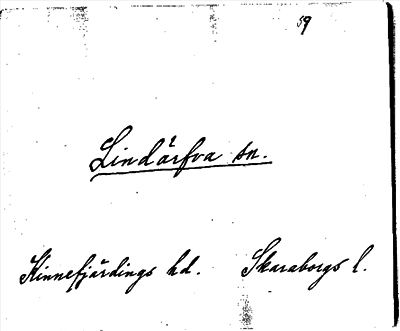 59
Lindärfva sn.
Kinnefjärdings hd. Skaraborgs l.